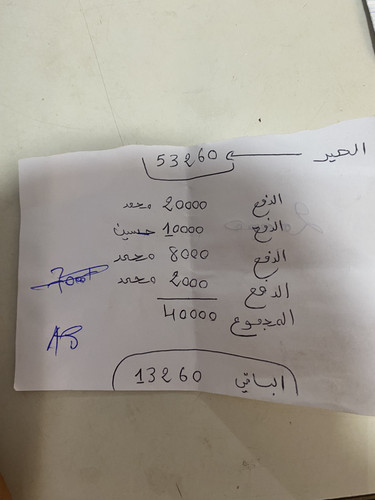 الصير 53260
الدفع 20000 محمد
الدفع 10000 حسين
الدفع 8000 محمد
الدفع 2000 محمد
7000
المجموع 40000
AB
الباقي 13260